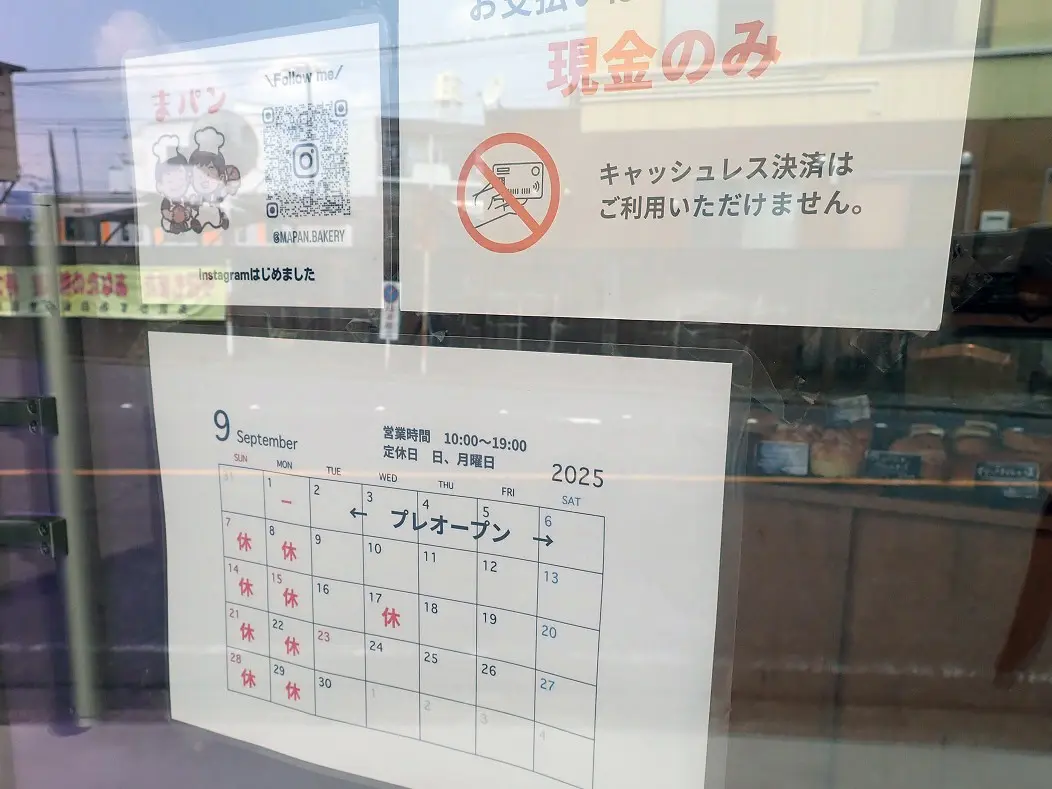 お支払いは
現金のみ
キャッシュレス決済は
ご利用いただけません。
\Follow me/
まパン
@MAPAN.BAKERY
Instagramはじめました
9 September
営業時間 10:00〜19:00
定休日 日、月曜日
2025
SUN MON TUE WED THU FRI SAT
31 1 2 3 4 5 6
ー ← プレオープン →
7 8 9 10 11 12 13
休 休
14 15 16 17 18 19 20
休 休 休
21 22 23 24 25 26 27
休 休
28 29 30 1 2 3 4
休 休